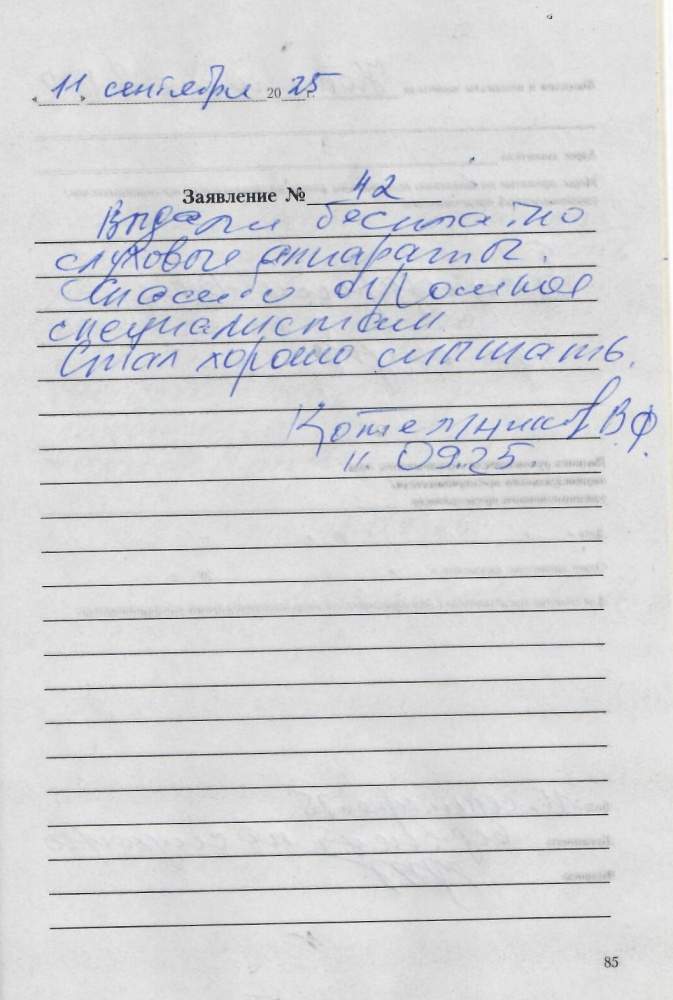 11 сентября 2025 г.
Заявление № 42
Выдали бесплатно
слуховые аппараты.
Спасибо огромное
специалистам.
Стал хорошо слышать.
Котельников В.Ф.
11.09.25.
85